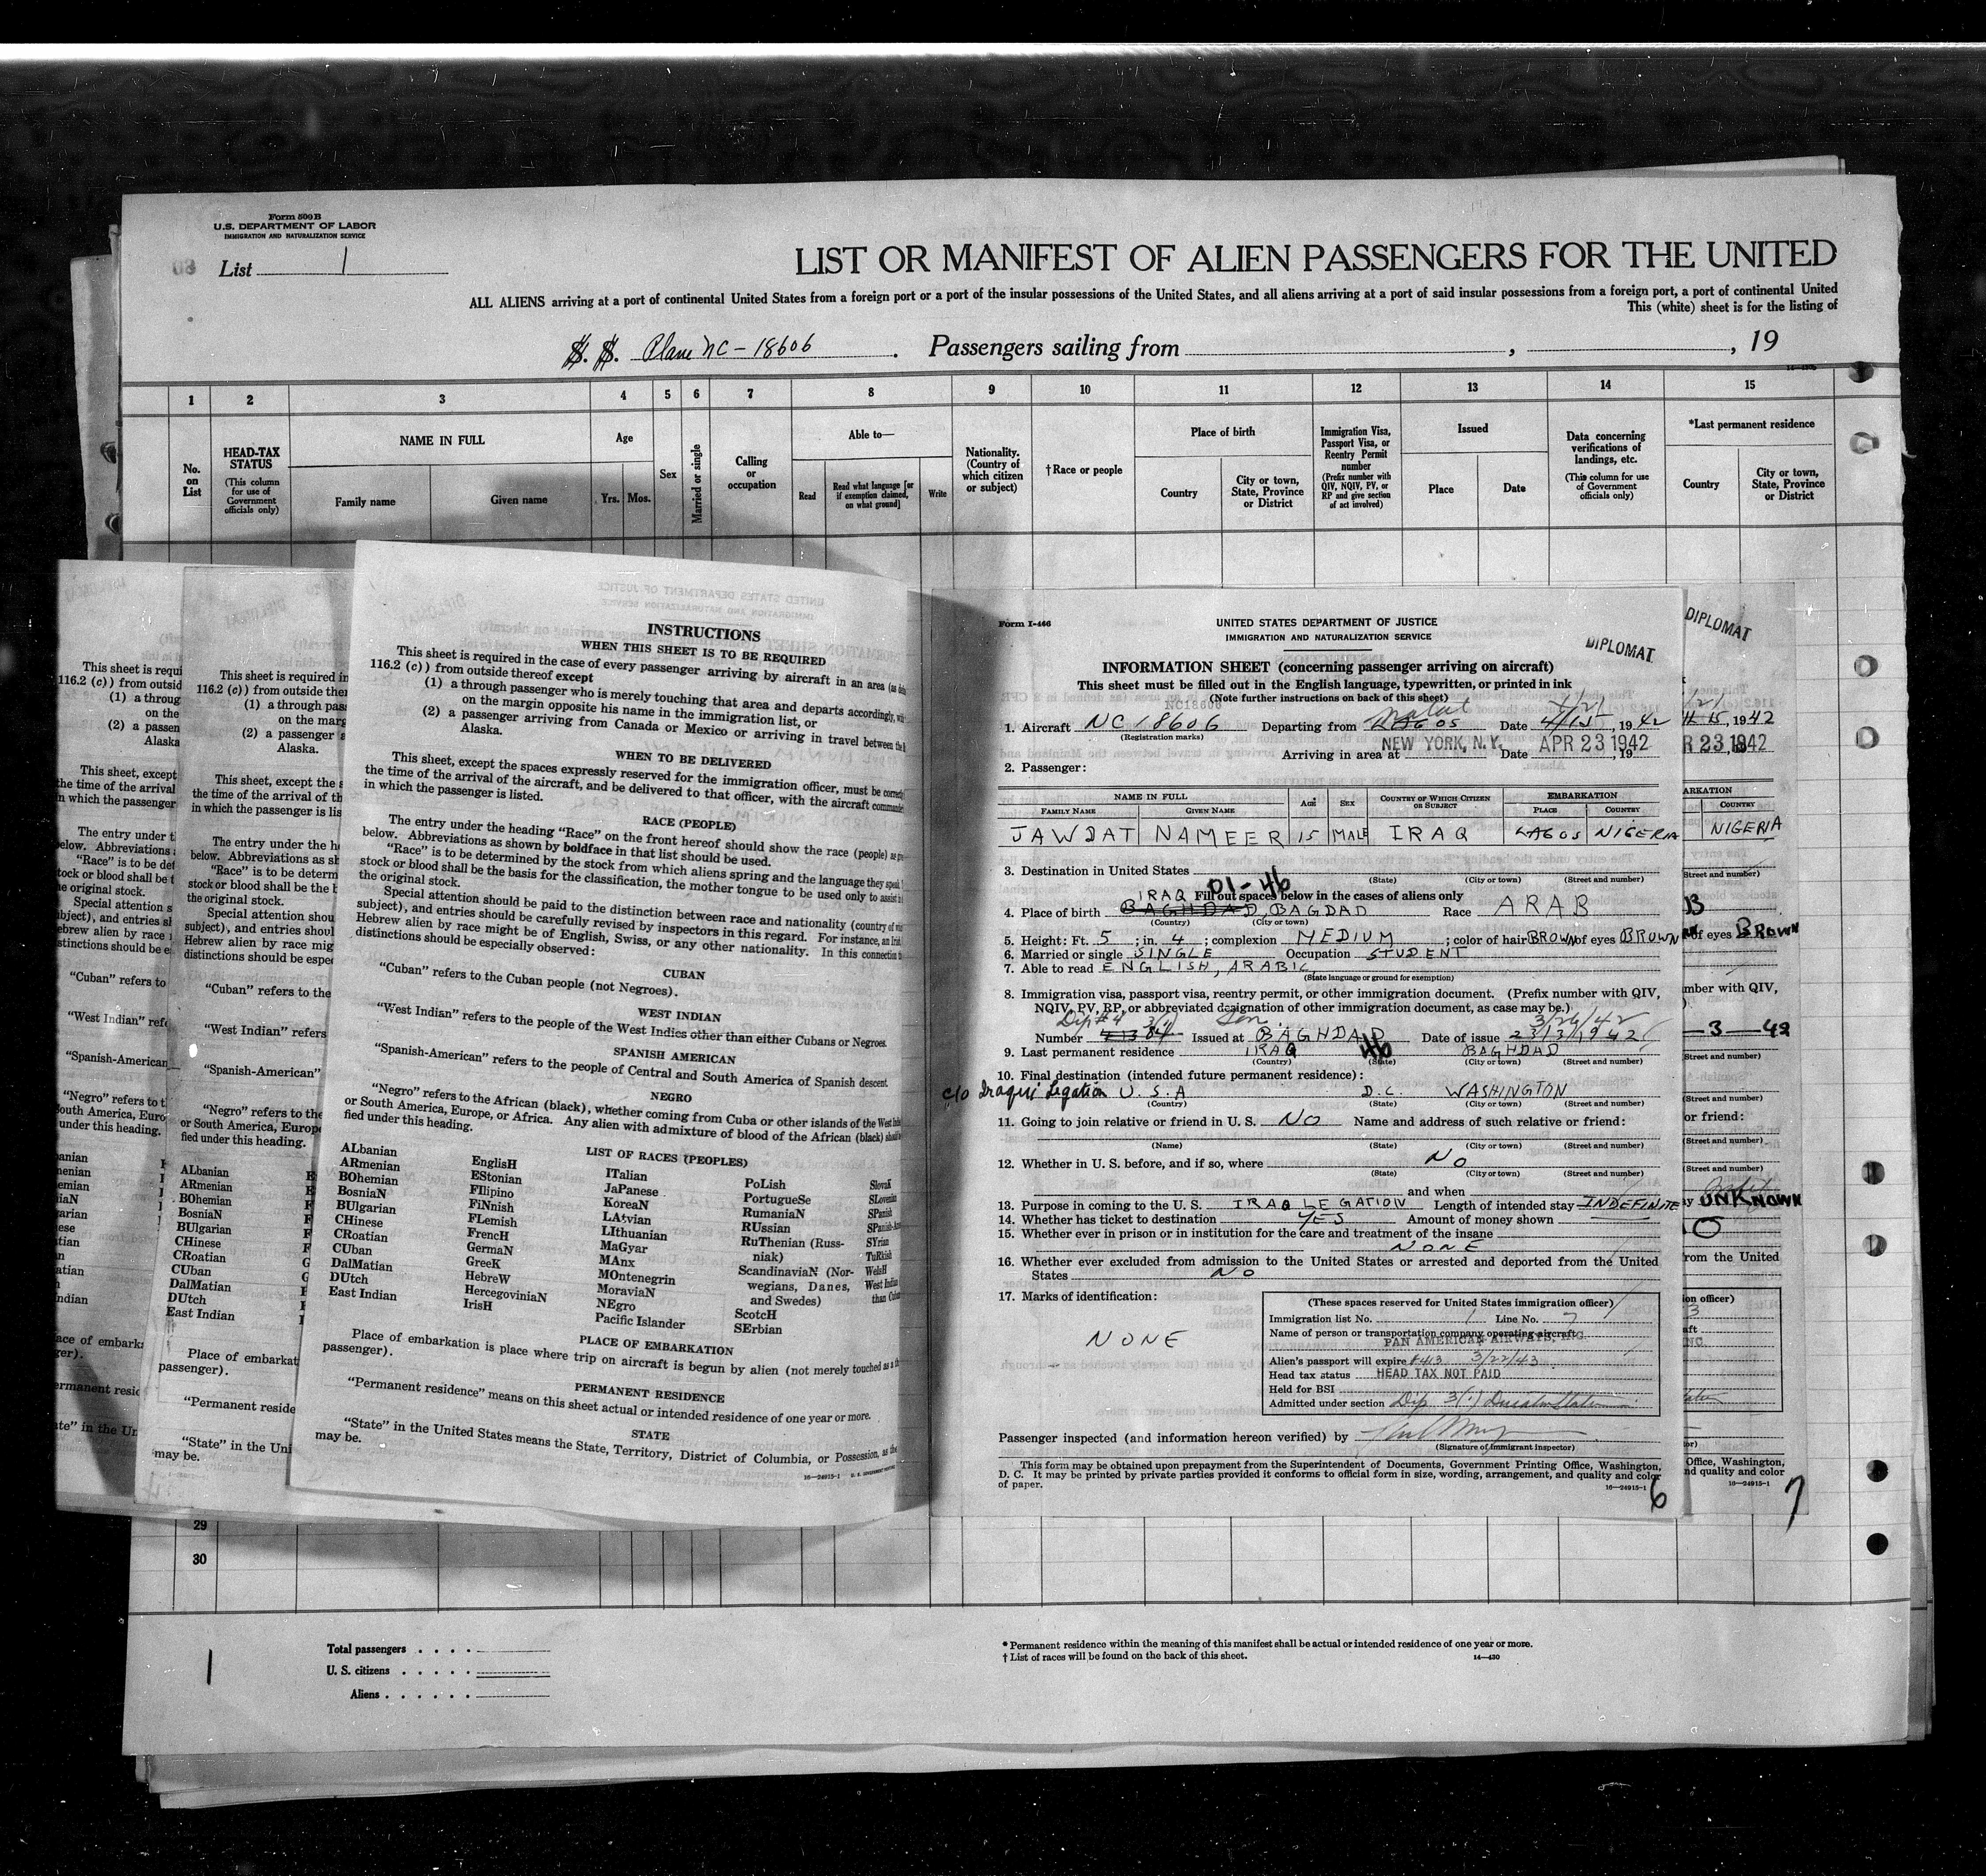 Form 500 B
U.S. DEPARTMENT OF LABOR
IMMIGRATION AND NATURALIZATION SERVICE
List 1
LIST OR MANIFEST OF ALIEN PASSENGERS FOR THE UNITED
ALL ALIENS arriving at a port of continental United States from a foreign port or a port of the insular possessions of the United States, and all aliens arriving at a port of said insular possessions from a foreign port, a port of continental United
This (white) sheet is for the listing of
S. S. Plane NC-18606. Passengers sailing from , , 19
1 2 3 4 5 6 7 8 9 10 11 12 13 14 15
No. on List
HEAD-TAX STATUS
(This column for use of Government officials only)
NAME IN FULL
Family name Given name
Age
Yrs. Mos.
Sex
Married or single
Calling or occupation
Able to—
Read
Read what language [or if exemption claimed, on what ground]
Write
Nationality. (Country of which citizen or subject)
†Race or people
Place of birth
Country
City or town, State, Province or District
Immigration Visa, Passport Visa, or Reentry Permit number
(Prefix number with QIV, NQIV, PV, or RP and give section of act involved)
Issued
Place Date
Data concerning verifications of landings, etc.
(This column for use of Government officials only)
*Last permanent residence
Country
City or town, State, Province or District
INSTRUCTIONS
WHEN THIS SHEET IS TO BE REQUIRED
This sheet is required in the case of every passenger arriving by aircraft in an area
116.2 (c)) from outside thereof except
(1) a through passenger who is merely touching that area and departs accordingly,
on the margin opposite his name in the immigration list, or
(2) a passenger arriving from Canada or Mexico or arriving in travel between the
Alaska.
WHEN TO BE DELIVERED
This sheet, except the spaces expressly reserved for the immigration officer, must be
the time of the arrival of the aircraft, and be delivered to that officer, with the aircraft
in which the passenger is listed.
RACE (PEOPLE)
The entry under the heading "Race" on the front hereof should show the race (people)
below. Abbreviations as shown by boldface in that list should be used.
"Race" is to be determined by the stock from which aliens spring and the language they
stock or blood shall be the basis for the classification, the mother tongue to be used only to
the original stock.
Special attention should be paid to the distinction between race and nationality (country of
subject), and entries should be carefully revised by inspectors in this regard. For instance, an
Hebrew alien by race might be of English, Swiss, or any other nationality. In this connection
distinctions should be especially observed:
CUBAN
"Cuban" refers to the Cuban people (not Negroes).
WEST INDIAN
"West Indian" refers to the people of the West Indies other than either Cubans or Negroes.
SPANISH AMERICAN
"Spanish-American" refers to the people of Central and South America of Spanish descent.
NEGRO
"Negro" refers to the African (black), whether coming from Cuba or other islands of the West
or South America, Europe, or Africa. Any alien with admixture of blood of the African (black)
fied under this heading.
LIST OF RACES (PEOPLES)
ALbanian
ARmenian
BOhemian
BosniaN
BUlgarian
CHinese
CRoatian
CUban
DalMatian
DUtch
East Indian
EnglisH
EStonian
FIlipino
FiNnish
FLemish
FrencH
GermaN
GreeK
HebreW
HercegoviniaN
IrisH
ITalian
JaPanese
KoreaN
LAtvian
LIthuanian
MaGyar
MAnx
MOntenegrin
MoraviaN
NEgro
Pacific Islander
PoLish
PortugueSe
RumaniaN
RUssian
RuThenian (Russniak)
ScandinaviaN (Norwegians, Danes, and Swedes)
ScotcH
SErbian
SlovaK
SLovenian
SPanish
SYrian
TuRkish
WelsH
PLACE OF EMBARKATION
Place of embarkation is place where trip on aircraft is begun by alien (not merely touched as a
passenger).
PERMANENT RESIDENCE
"Permanent residence" means on this sheet actual or intended residence of one year or more.
STATE
"State" in the United States means the State, Territory, District of Columbia, or Possession, as the
may be.
16—24915-1
Form I-466
UNITED STATES DEPARTMENT OF JUSTICE
IMMIGRATION AND NATURALIZATION SERVICE
DIPLOMAT
INFORMATION SHEET (concerning passenger arriving on aircraft)
This sheet must be filled out in the English language, typewritten, or printed in ink
(Note further instructions on back of this sheet)
NC18606
1. Aircraft NC 18606 Departing from Natal LAGOS Date 4/21 4/15, 1942
(Registration marks)
Arriving in area at NEW YORK, N.Y. Date APR 23 1942, 19
2. Passenger:
NAME IN FULL
FAMILY NAME GIVEN NAME AGE SEX COUNTRY OF WHICH CITIZEN OR SUBJECT EMBARKATION PLACE COUNTRY
JAWDAT NAMEER 15 MALE IRAQ LAGOS NIGERIA
3. Destination in United States
(State) (City or town) (Street and number)
01-46
Fill out spaces below in the cases of aliens only
4. Place of birth IRAQ BAGHDAD, BAGDAD Race ARAB
(Country) (City or town)
5. Height: Ft. 5; in. 4; complexion MEDIUM; color of hair BROWN of eyes BROWN
6. Married or single SINGLE Occupation STUDENT
7. Able to read ENGLISH, ARABIC
(State language or ground for exemption)
8. Immigration visa, passport visa, reentry permit, or other immigration document. (Prefix number with QIV,
NQIV, PV, RP, or abbreviated designation of other immigration document, as case may be.)
Dip #4 3(1) 3/26/42
Number Issued at BAGHDAD Date of issue 23/3/1942
9. Last permanent residence IRAQ 46 BAGHDAD
(Country) (State) (City or town) (Street and number)
10. Final destination (intended future permanent residence):
c/o Iraquis Legation U.S.A D.C. WASHINGTON
(Country) (State) (City or town) (Street and number)
11. Going to join relative or friend in U. S. NO Name and address of such relative or friend:
(Name) (State) (City or town) (Street and number)
12. Whether in U. S. before, and if so, where NO
(State) (City or town) (Street and number)
and when
13. Purpose in coming to the U. S. IRAQ LEGATION Length of intended stay INDEFINITE
14. Whether has ticket to destination YES Amount of money shown
15. Whether ever in prison or in institution for the care and treatment of the insane
NONE
16. Whether ever excluded from admission to the United States or arrested and deported from the United
States NO
17. Marks of identification:
NONE
(These spaces reserved for United States immigration officer)
Immigration list No. 1 Line No. 7
Name of person or transportation company operating aircraft
PAN AMERICAN AIRWAYS, INC.
Alien's passport will expire 3/22/43
Head tax status HEAD TAX NOT PAID
Held for BSI
Admitted under section Dip 3(1)
Passenger inspected (and information hereon verified) by
(Signature of immigrant inspector)
This form may be obtained upon prepayment from the Superintendent of Documents, Government Printing Office, Washington,
D. C. It may be printed by private parties provided it conforms to official form in size, wording, arrangement, and quality and color
of paper.
16—24915-1
6
DIPLOMAT
1942
R 23 1942
ARKATION
COUNTRY
NIGERIA
Street and number)
of eyes BROWN
mber with QIV,
—3—42
Street and number)
or friend:
Street and number)
UNKNOWN
O
from the United
ion officer)
Office, Washington,
nd quality and color
16—24915-1
7
29
30
1
Total passengers
U. S. citizens
Aliens
* Permanent residence within the meaning of this manifest shall be actual or intended residence of one year or more.
† List of races will be found on the back of this sheet.
14—430